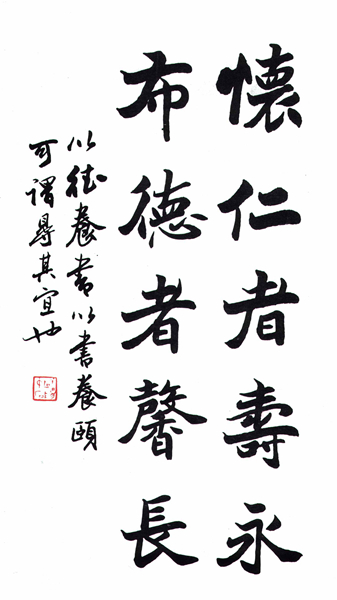 懷仁者壽永
布德者馨長
以德養書以書養頤
可謂得其宜也